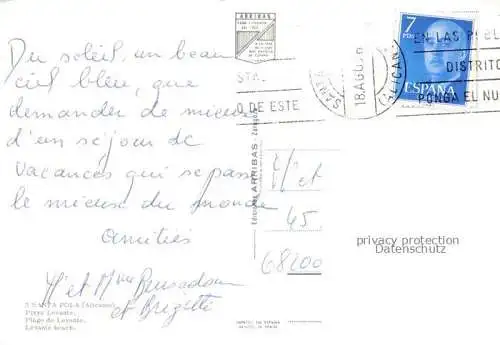 ARRIBAS
Du soleil, un beau
ciel bleu, que
demander de mieux
d'un séjour de
vacances qui se passe
le mieux du monde
amitiés
Mr et Mme
et Brigitte
5 SANTA POLA (Alicante)
Playa Levante.
Plage de Levante.
Levante beach.
Ediciones ARRIBAS - Zaragoza
7
PTAS
ESPAÑA
18.AGO
ALICAN
EN LAS POBL
DISTRITO
PONGA EL NU
STA.
O DE ESTE
Mr et
45
68200
privacy protection
Datenschutz